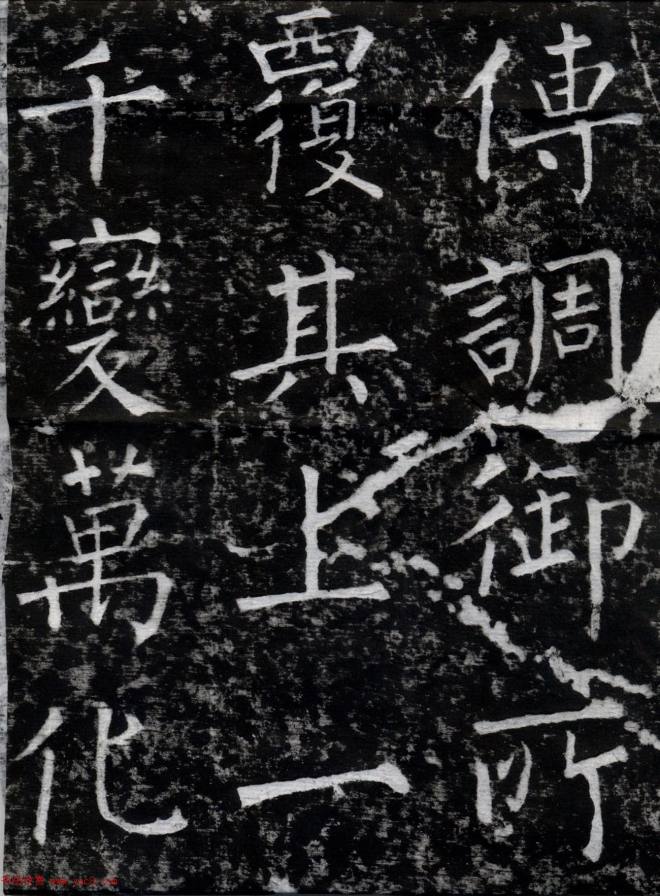 傳調御所
覆其上一
千變萬化